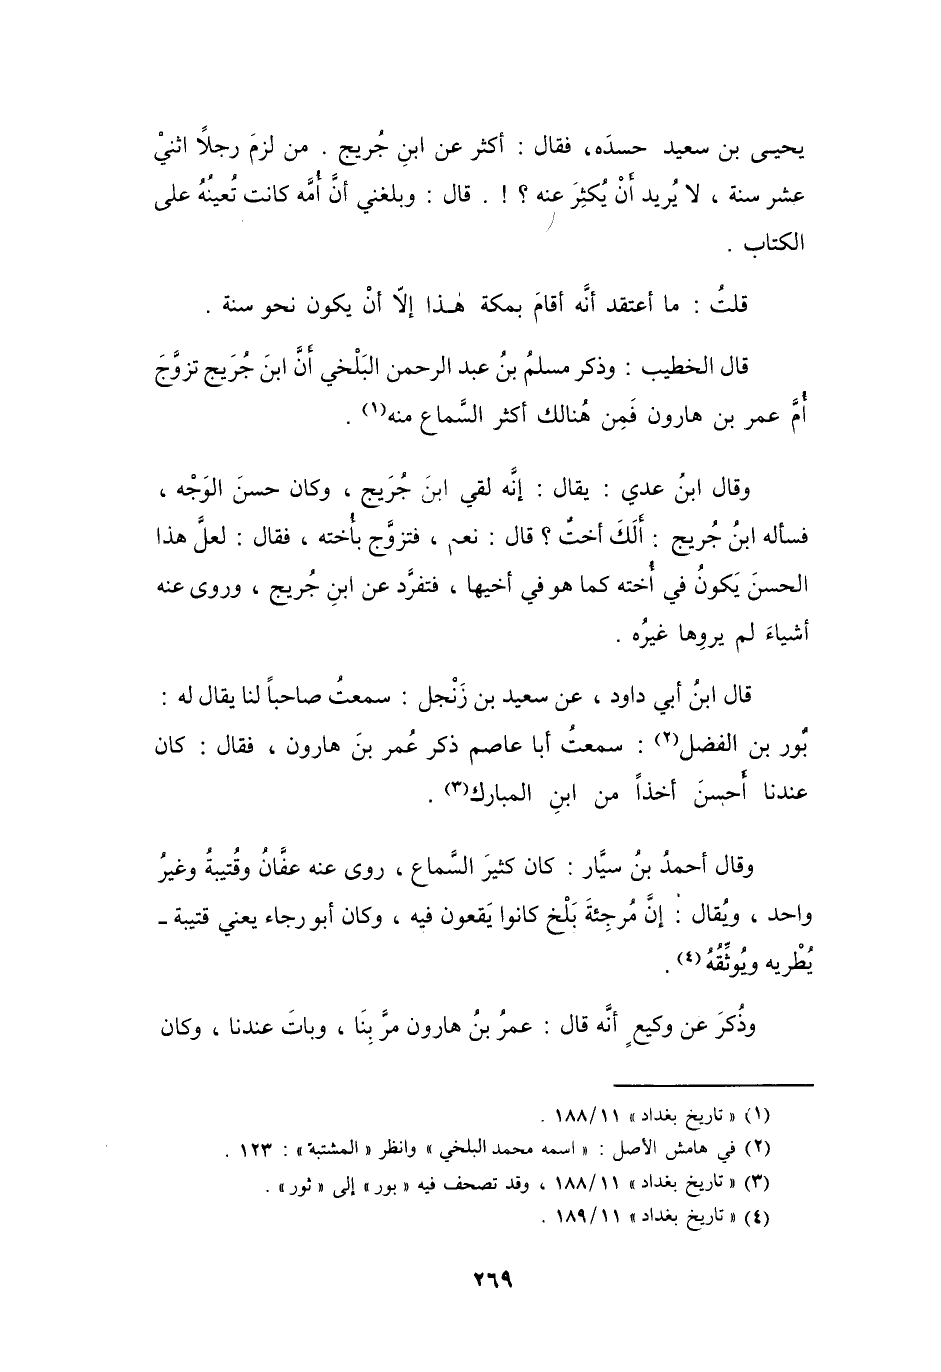 يحيى بن سعيد حسدَه، فقال : أكثر عن ابنِ جُريج . من لزمَ رجلاً اثنيْ
عشر سنة ، لا يُريد أَنْ يُكثِرَ عنه ؟ ! . قال : وبلغني أنَّ أُمَّه كانت تُعينُهُ على
الكتاب .
قلتُ : ما أعتقد أنَّه أقامَ بمكة هٰذا إلاّ أنْ يكون نحو سنة .
قال الخطيب : وذكر مسلمُ بنُ عبد الرحمن البَلْخي أَنَّ ابنَ جُرَيج تزوَّجَ
أُمَّ عمر بن هارون فَمِن هُنالك أكثر السَّماع منه(١) .
وقال ابنُ عدي : يقال : إنَّه لقي ابنَ جُرَيج ، وكان حسنَ الوَجْه ،
فسأله ابنُ جُريج : أَلَكَ أختٌ ؟ قال : نعم ، فتزوَّج بأُخته ، فقال : لعلَّ هذا
الحسنَ يَكونُ في أُخته كما هو في أخيها ، فتفرَّد عن ابنِ جُريج ، وروى عنه
أشياءَ لم يروِها غيرُه .
قال ابنُ أبي داود ، عن سعيد بن زَنْجل : سمعتُ صاحباً لنا يقال له :
بُور بن الفضل(٢) : سمعتُ أبا عاصم ذكر عُمر بنَ هارون ، فقال : كان
عندنا أَحسنَ أخذاً من ابنِ المبارك(٣) .
وقال أحمدُ بنُ سيَّار : كان كثيرَ السَّماع ، روى عنه عفَّانُ وقُتيبةُ وغيرُ
واحد ، ويُقال : إنَّ مُرجِئةَ بَلْخ كانوا يَقعون فيه ، وكان أبو رجاء يعني قتيبة ـ
يُطْريه ويُوثِّقُهُ(٤) .
وذُكرَ عن وكيعٍ أنَّه قال : عمرُ بنُ هارون مرَّ بِنَا ، وباتَ عندنا ، وكان
(١) « تاريخ بغداد » ١٨٨/١١ .
(٢) في هامش الأصل : « اسمه محمد البلخي » وانظر « المشتبة » : ١٢٣ .
(٣) « تاريخ بغداد » ١٨٨/١١ ، وقد تصحف فيه « بور » إلى « ثور » .
(٤) « تاريخ بغداد » ١٨٩/١١ .
٢٦٩